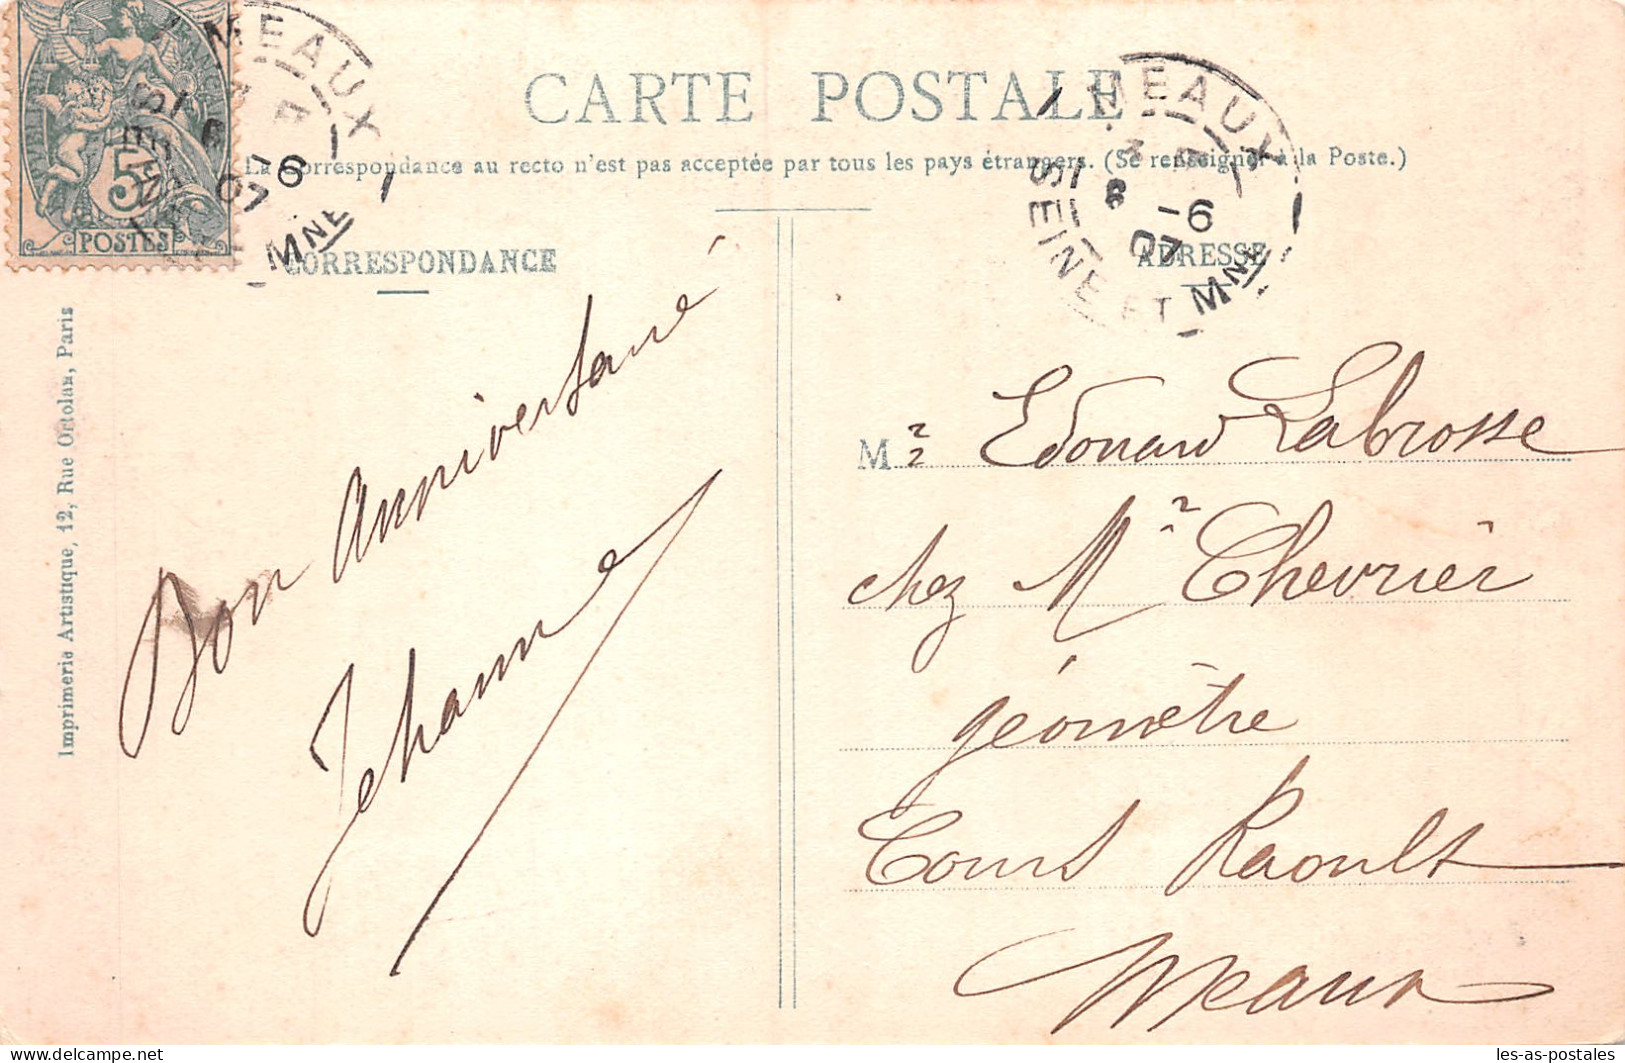 CARTE POSTALE
La Correspondance au recto n'est pas acceptée par tous les pays étrangers. (Se renseigner à la Poste.)
CORRESPONDANCE
ADRESSE
5
POSTES
MEAUX
8 -6
07
SEINE ET MNE
MEAUX
8 -6
07
SEINE ET MNE
Imprimerie Artistique, 12, Rue Ortolan, Paris
Bon Anniversaire
Jehanne
Mr Edouard Labrosse
chez Mr Chevrier
géomètre
Cours Raoult
Meaux
les-as-postales
delcampe.net